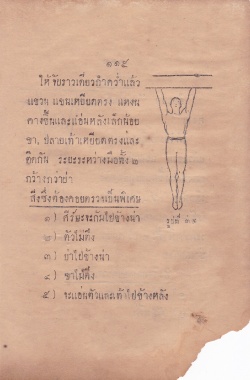 ๑๑๕
ให้จับราวเดี่ยวถ้าคว่ำแล้ว
แขวน แขนเหยียดตรง แหงน
คางขึ้นและแอ่นหลังเล็กน้อย
ขา, ปลายเท้าเหยียดตรงและ
ชิดกัน ระยะระหว่างมือทั้ง ๒
กว้างกว่าบ่า
สิ่งซึ่งต้องคอยตรวจเป็นพิเศษ
๑) ศีร์ษะก้มไปข้างน่า
๒) ตัวไม่ตึง
๓) บ่าไปข้างน่า
๔) ขาไม่ตึง
๕) จะแอ่นตัวและเท้าไปข้างหลัง
รูปที่